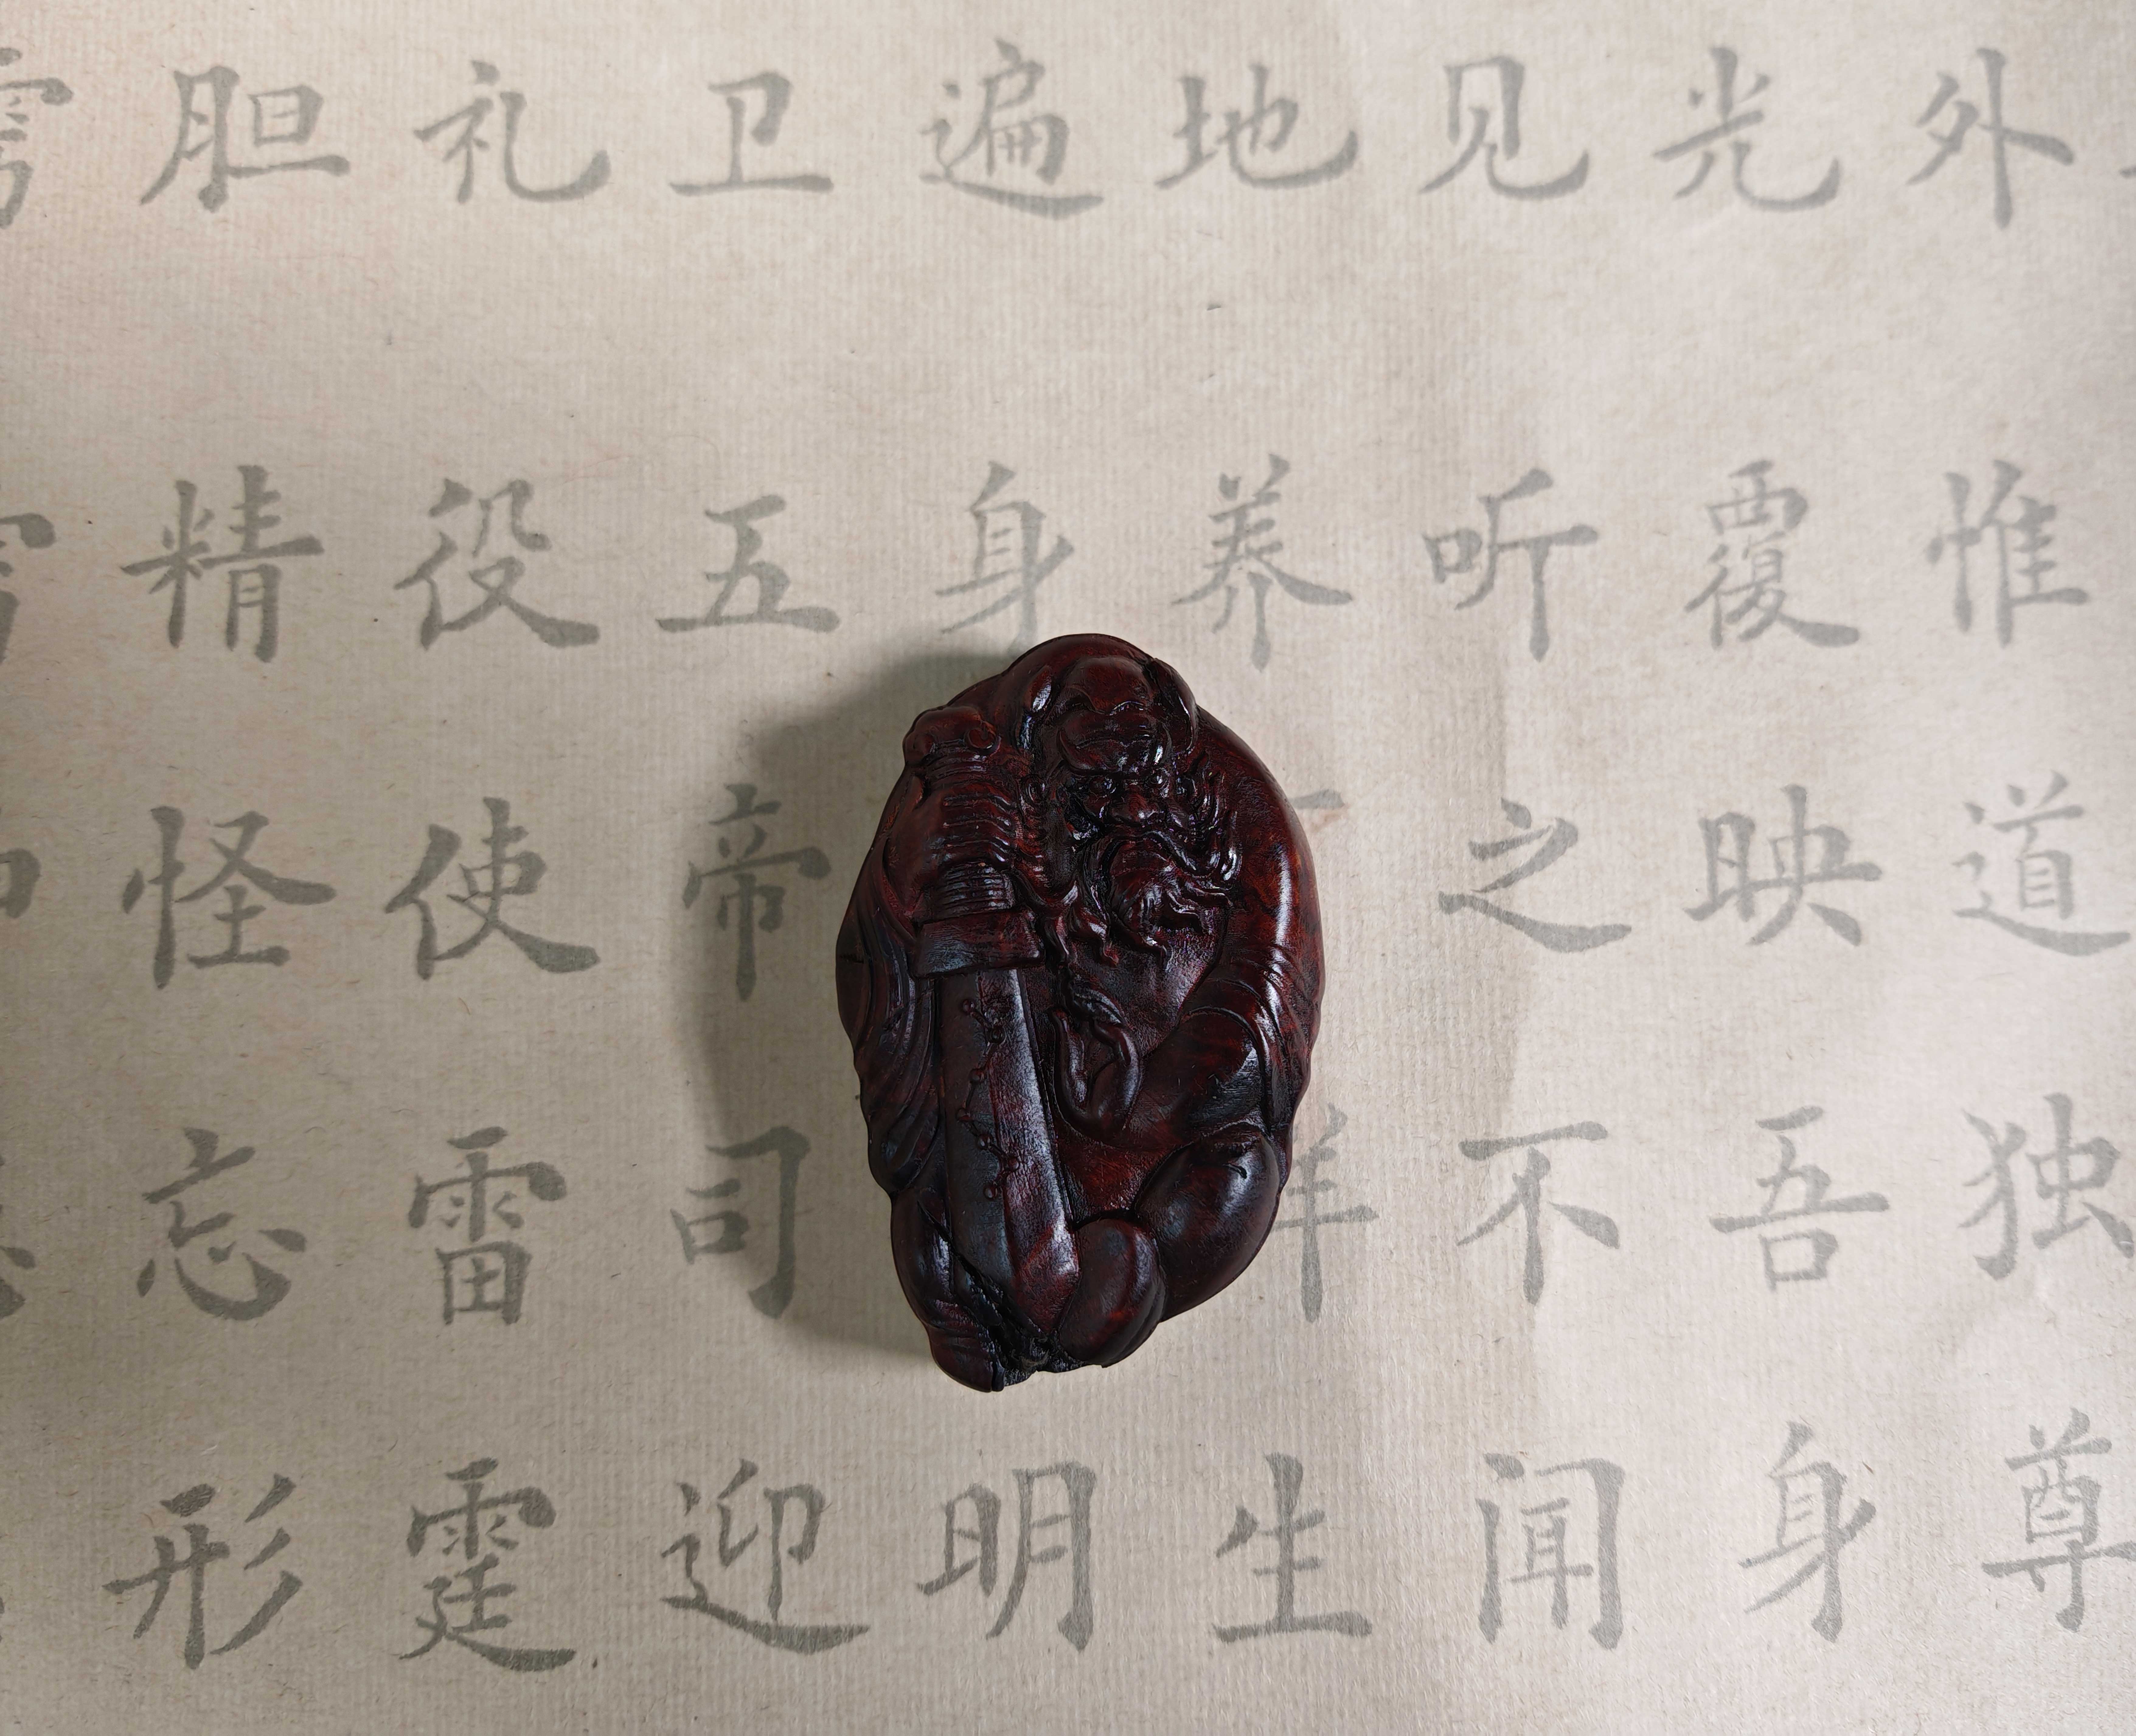 外惟道独尊
光覆映吾身
见听之不闻
地养生
遍身明
卫五帝司迎
礼役使雷霆
胆精怪忘形